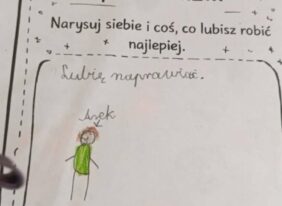 Narysuj siebie i coś, co lubisz robić
najlepiej.
Lubię naprawiać.